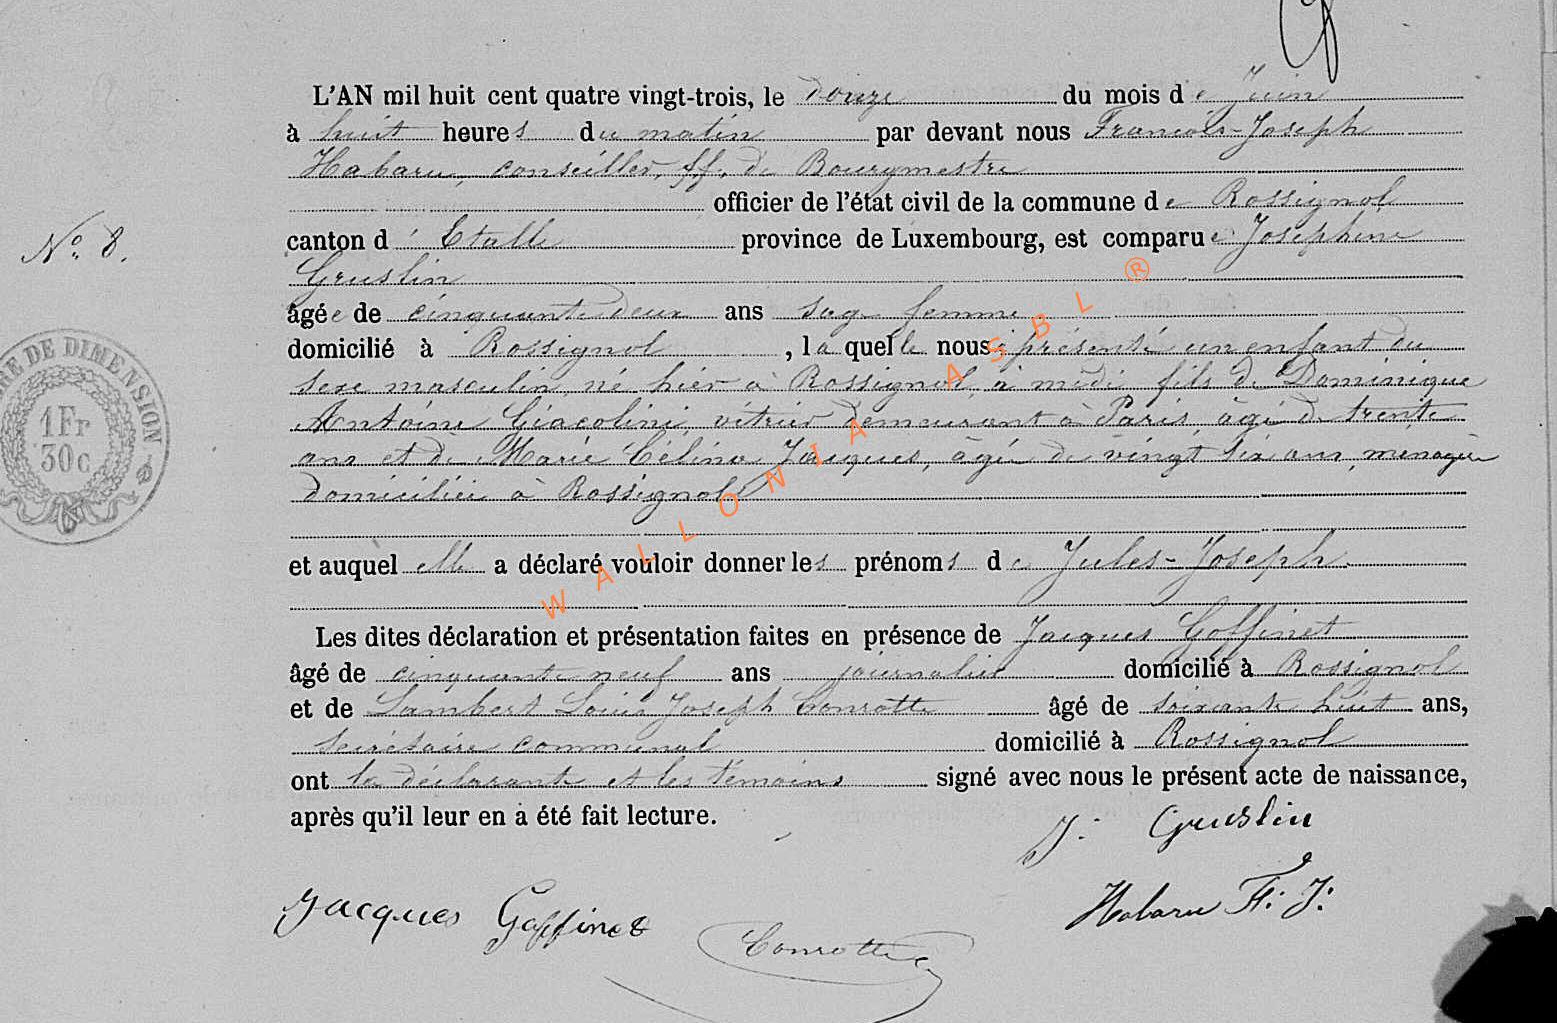 L'AN mil huit cent quatre vingt-trois, le douze du mois de Juin
à huit heures du matin par devant nous François-Joseph
Habaru, conseiller, ff. de Bourgmestre
officier de l'état civil de la commune de Rossignol
No. 8.
canton d'Etalle province de Luxembourg, est comparue Josephine
Gruslin
âgée de cinquante deux ans sage femme
domicilié à Rossignol, laquelle nous a présenté un enfant du
sexe masculin, né hier à Rossignol, à midi fils de Dominique
Antoine Giacolini, vitrier demeurant à Paris, âgé de trente
ans et de Marie Célina Jacques, âgée de vingt six ans, ménagère
domiciliée à Rossignol
et auquel elle a déclaré vouloir donner les prénoms de Jules-Joseph.
Les dites déclaration et présentation faites en présence de Jacques Goffinet
âgé de cinquante neuf ans journalier domicilié à Rossignol
et de Lambert Louis Joseph Conrotte âgé de soixante huit ans,
secrétaire communal domicilié à Rossignol
ont la déclarante et les témoins signé avec nous le présent acte de naissance,
après qu'il leur en a été fait lecture.
J. Gruslin
Jacques Goffinet
Habaru F. J.
Conrotte
DE DIMENSION
1Fr
30c
WALLONIA ASBL ®